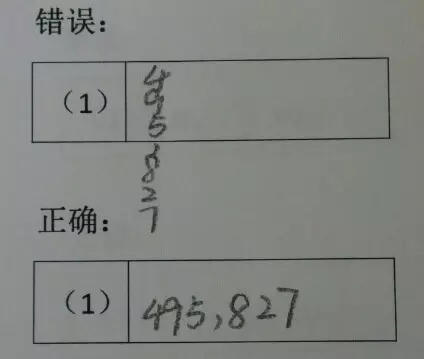 错误：
（1）
4
9
5
,
8
2
7
正确：
（1） 495,827